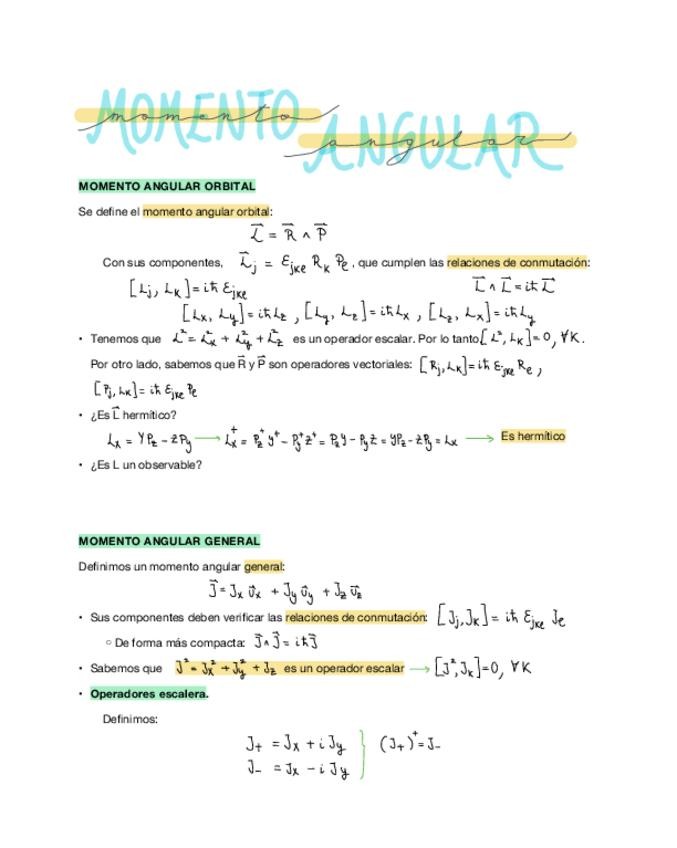 MOMENTO ANGULAR
momento angular
MOMENTO ANGULAR ORBITAL
Se define el momento angular orbital:
L⃗ = R⃗ ∧ P⃗
Con sus componentes, L⃗j = εjkℓ Rk Pℓ, que cumplen las relaciones de conmutación:
[Lj, Lk] = iħ εjkℓ L⃗ ∧ L⃗ = iħ L⃗
[Lx, Ly] = iħLz, [Ly, Lz] = iħLx, [Lz, Lx] = iħLy
• Tenemos que L² = Lx² + Ly² + Lz² es un operador escalar. Por lo tanto [L², Lk] = 0, ∀K.
Por otro lado, sabemos que R⃗ y P⃗ son operadores vectoriales: [Rj, Lk] = iħ εjkℓ Rℓ,
[Pj, Lk] = iħ εjkℓ Pℓ
• ¿Es L⃗ hermítico?
Lx = YPz − ZPy → Lx⁺ = Pz⁺ y⁺ − Py⁺ z⁺ = Pz y − Py z = yPz − zPy = Lx → Es hermítico
• ¿Es L un observable?
MOMENTO ANGULAR GENERAL
Definimos un momento angular general:
J⃗ = Jx u⃗x + Jy u⃗y + Jz u⃗z
• Sus componentes deben verificar las relaciones de conmutación: [Jj, Jk] = iħ εjkℓ Jℓ
○ De forma más compacta: J⃗ ∧ J⃗ = iħJ⃗
• Sabemos que J² = Jx² + Jy² + Jz es un operador escalar → [J², Jk] = 0, ∀K
• Operadores escalera.
Definimos:
J+ = Jx + i Jy } (J+)⁺ = J−
J− = Jx − i Jy